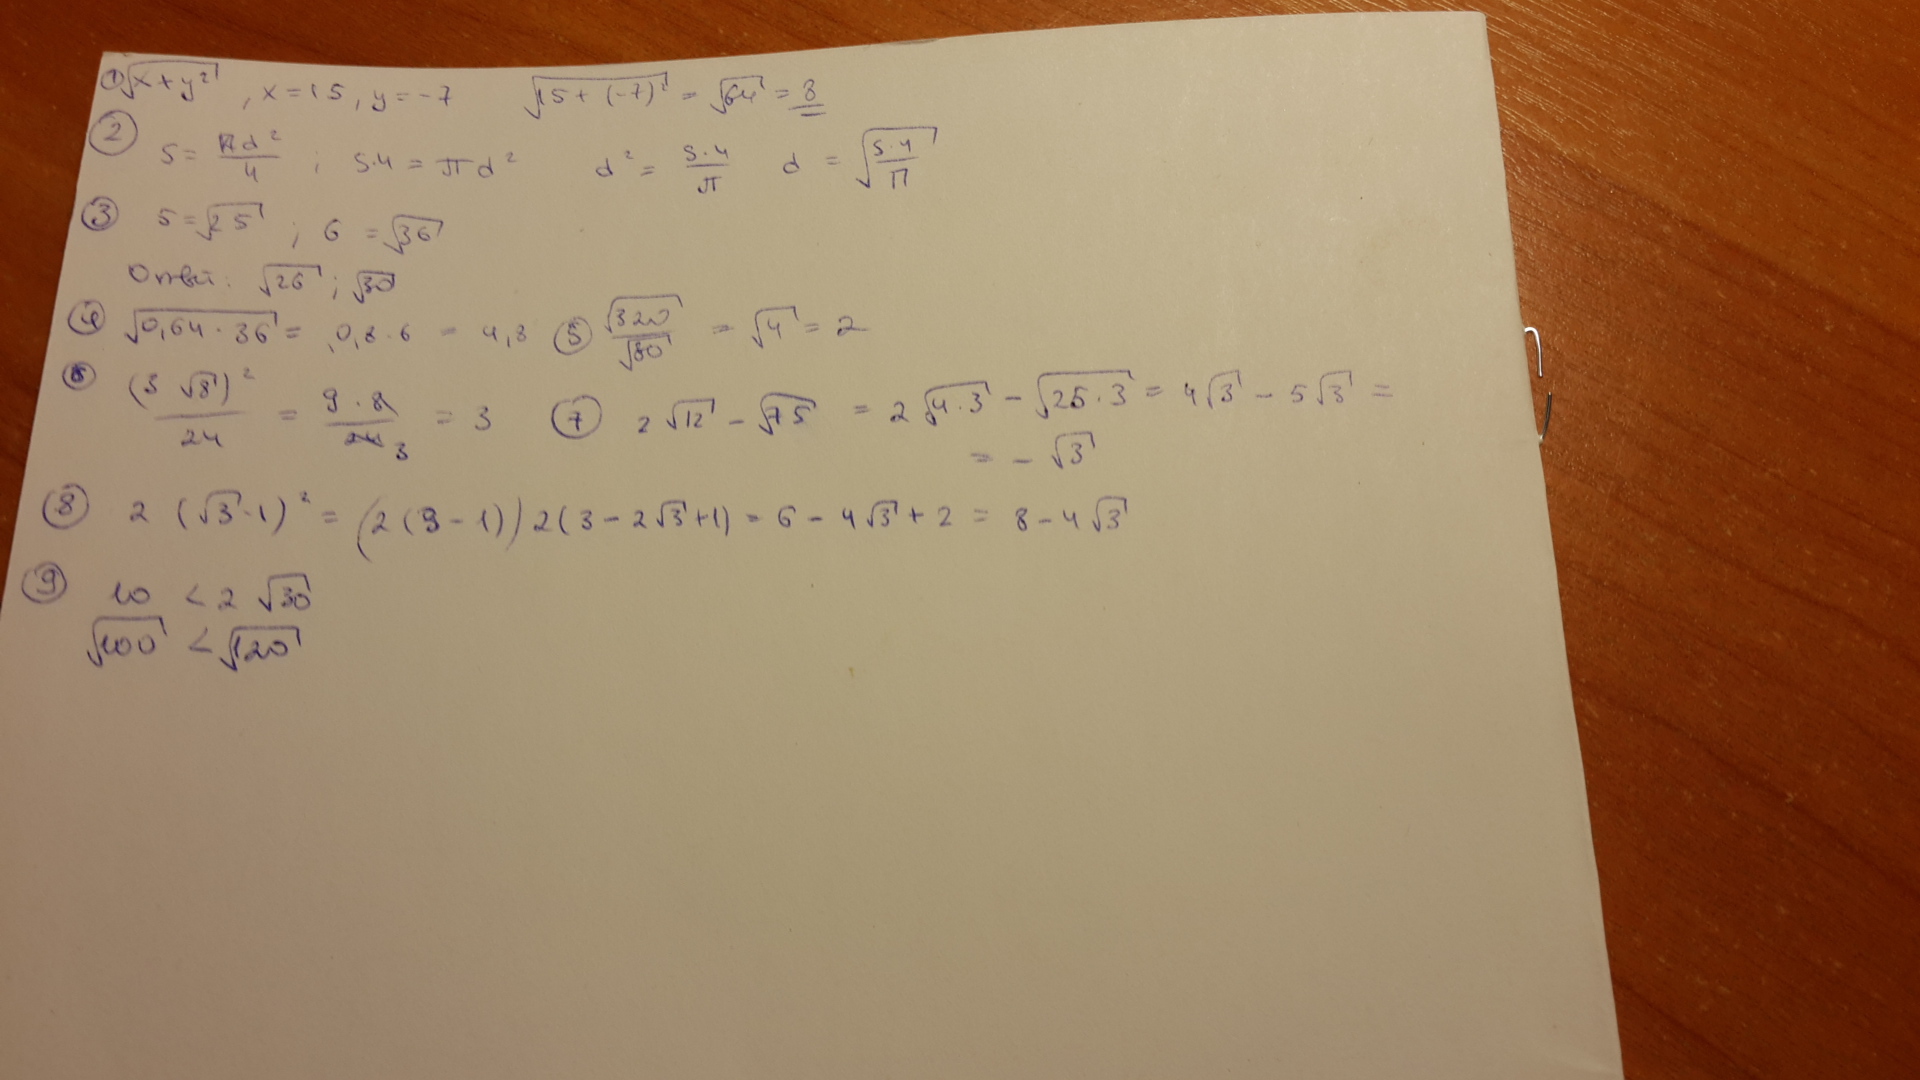 ① √(x+y²), x=15, y=-7 √(15+(-7)²) = √64 = 8
② S = πd²/4 ; S·4 = πd² d² = S·4/π d = √(S·4/π)
③ 5=√25 ; 6 = √36
Ответ: √26 ; √30
④ √(0,64·36) = 0,8·6 = 4,8 ⑤ √320/√80 = √4 = 2
⑥ (3√8)²/24 = 9·8/24 3 = 3 ⑦ 2√12 - √75 = 2√(4·3) - √(25·3) = 4√3 - 5√3 =
= - √3
⑧ 2(√3-1)² = (2(9-1)) 2(3-2√3+1) = 6-4√3+2 = 8-4√3
⑨ 10 < 2√30
√100 < √120